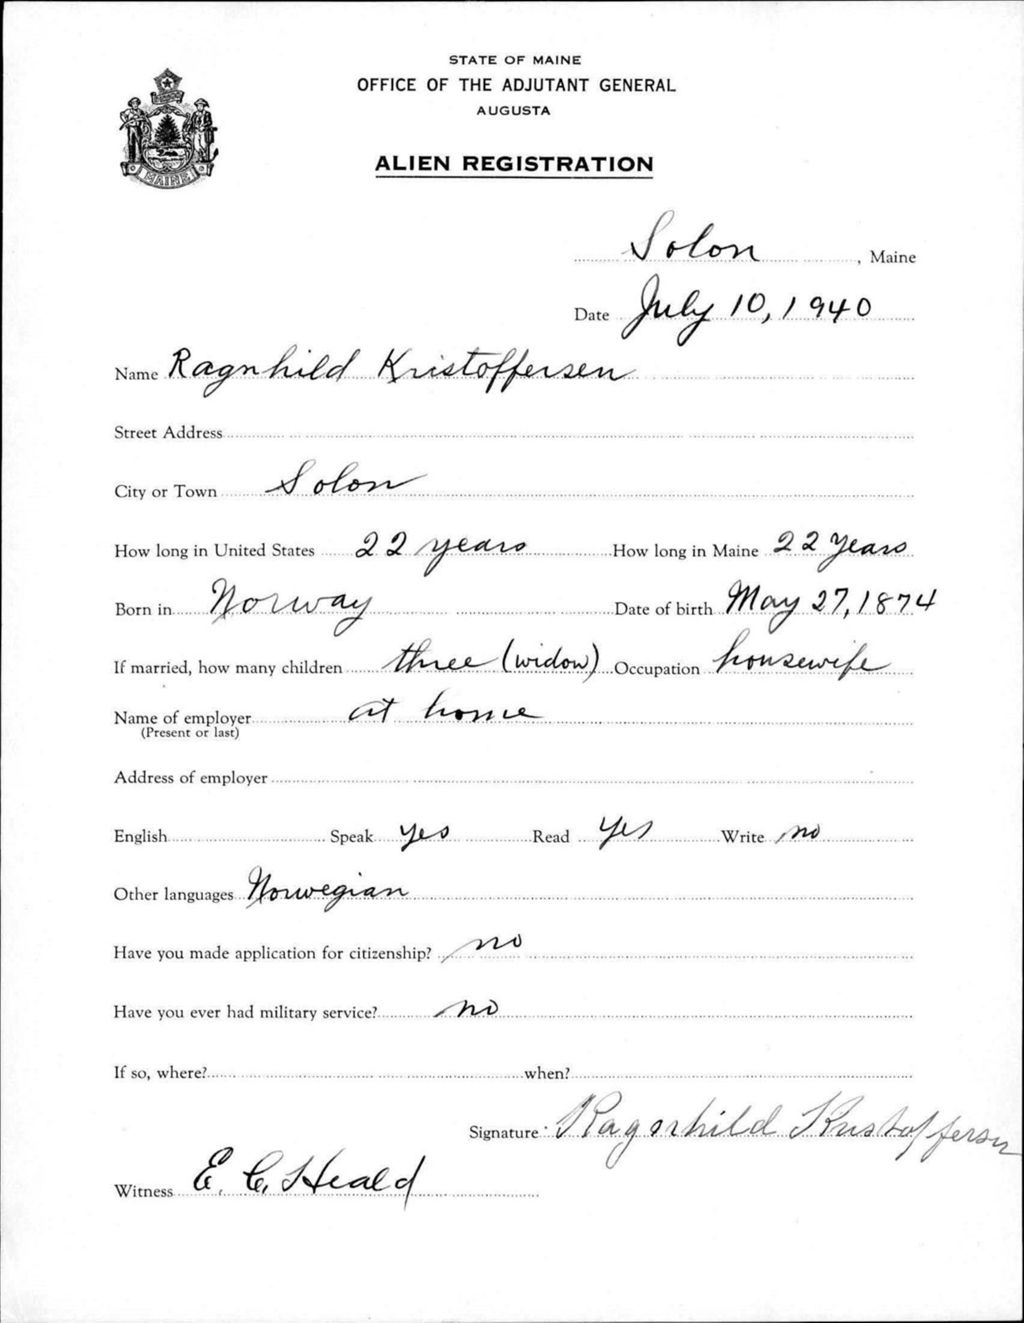 STATE OF MAINE
OFFICE OF THE ADJUTANT GENERAL
AUGUSTA
MAINE
ALIEN REGISTRATION
Solon, Maine
Date July 10, 1940
Name Ragnhild Kristoffersen
Street Address
City or Town Solon
How long in United States 22 years How long in Maine 22 Years
Born in Norway Date of birth May 27, 1874
If married, how many children three (widow) Occupation housewife
Name of employer at home
(Present or last)
Address of employer
English Speak yes Read Yes Write no
Other languages Norwegian
Have you made application for citizenship? no
Have you ever had military service? no
If so, where? when?
Signature Ragnhild Kristoffersen
Witness E. C. Heald